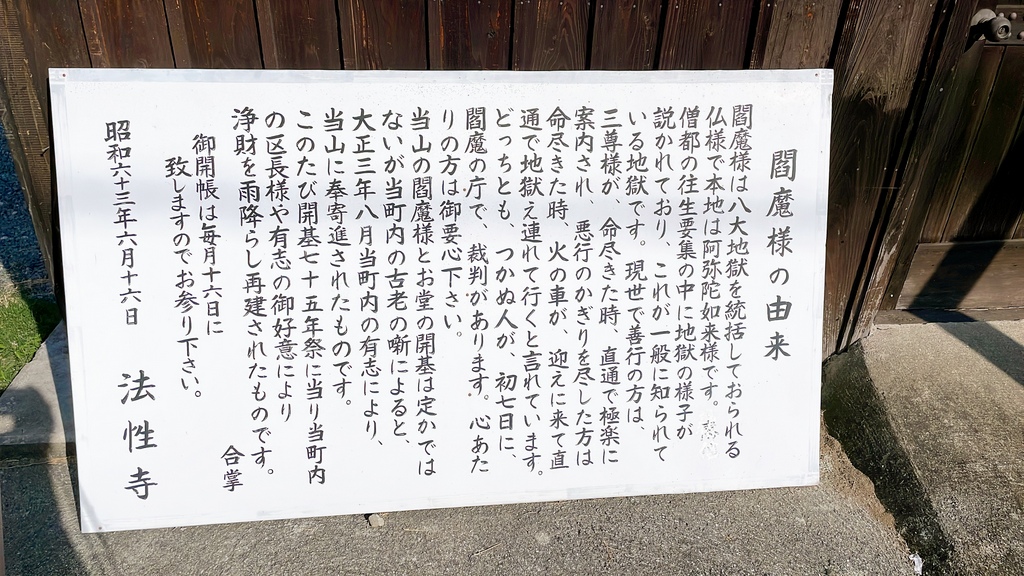 閻魔様の由来
閻魔様は八大地獄を統括しておられる
仏様で本地は阿弥陀如来様です。
僧都の往生要集の中に地獄の様子が
説かれており、これが一般に知られて
いる地獄です。現世で善行の方は、
三尊様が、命尽きた時、直通で極楽に
案内され、悪行のかぎりを尽した方は
命尽きた時、火の車が、迎えに来て直
通で地獄え連れて行くと言れています。
どっちとも、つかぬ人が、初七日に、
閻魔の庁で、裁判があります。心あた
りの方は御要心下さい。
当山の閻魔様とお堂の開基は定かでは
ないが当町内の古老の噺によると、
大正三年八月当町内の有志により、
当山に奉寄進されたものです。
このたび開基七十五年祭に当り当町内
の区長様や有志の御好意により
浄財を雨降らし再建されたものです。
合掌
御開帳は毎月十六日に
致しますのでお参り下さい。
昭和六十三年六月十六日 法性寺